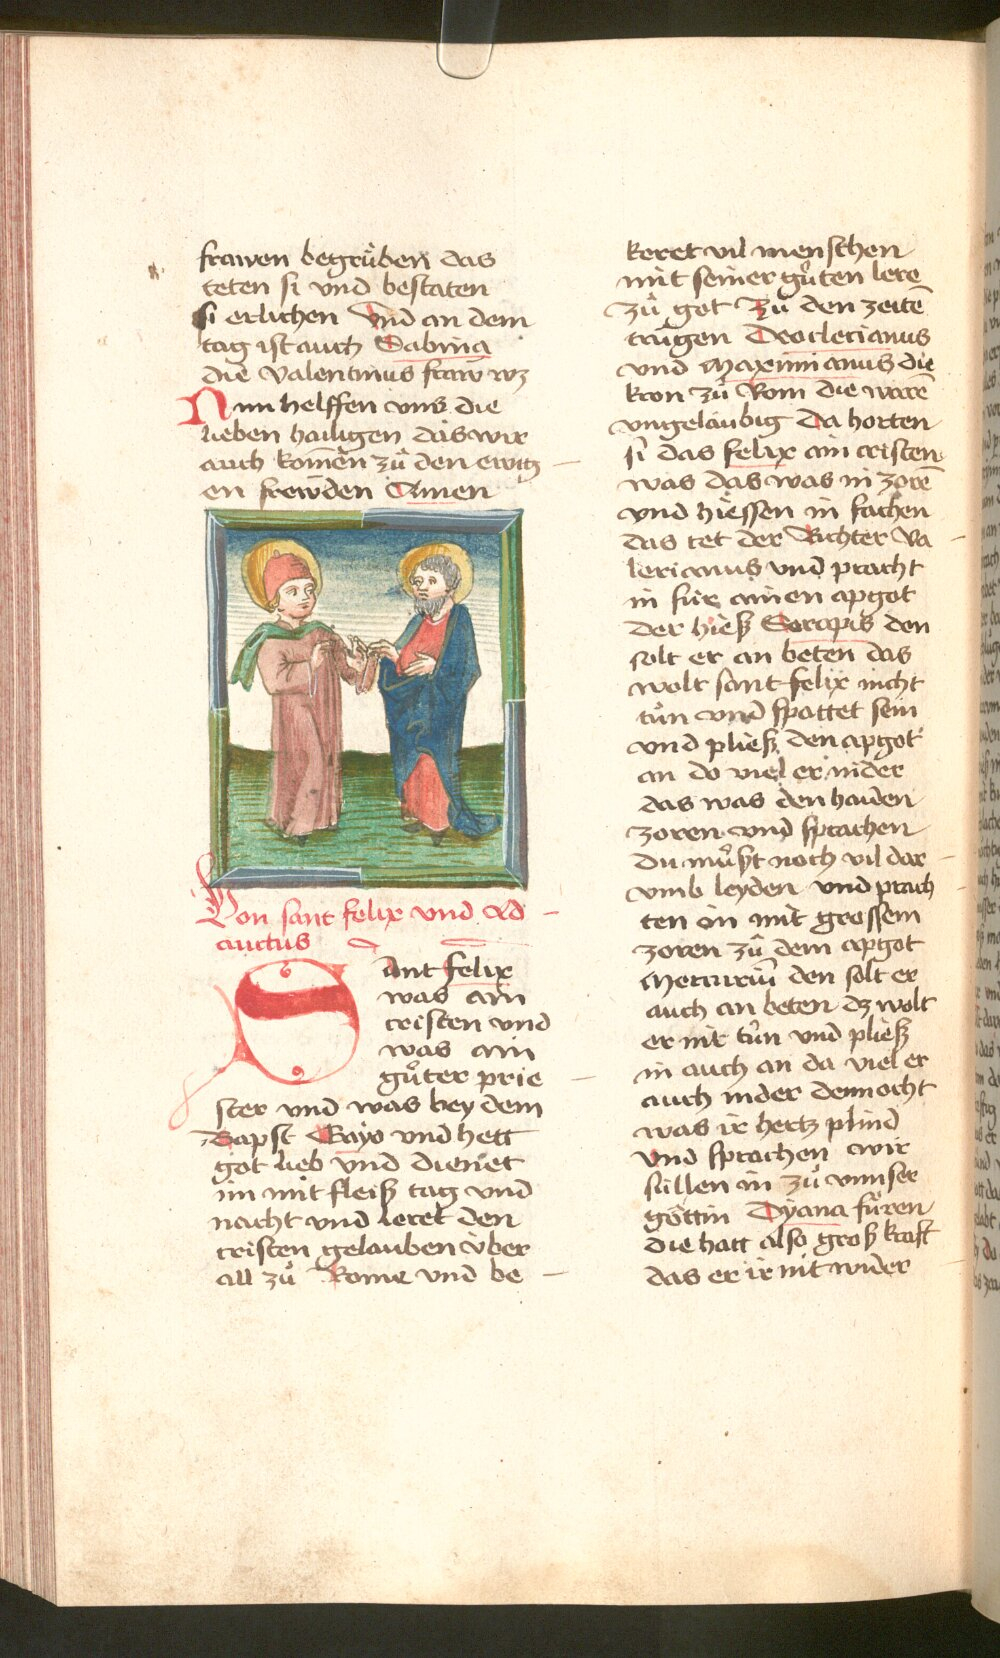 frawen begrůben das
teten si vnd bestaten
si erlichen Vnd an dem
tag ist auch Sabina
die Valentinus fraw wz
Nun helffen vns die
lieben hailigen das wir
auch komen zů den ewig
en frewden Amen
Von sant felix vnd Ad
auctus
Sant felix
was ain
cristen vnd
was ain
gůter prie
ster vnd was bey dem
Bapst Gayo vnd hett
got lieb vnd dienet
im mit fleiß tag vnd
nacht vnd leret den
cristen gelauben über
all zů Rome vnd be
keret vil menschen
mit seiner gůten lere
zů got Zů den zeitē
trůgen Deocletianus
vnd Maximianus die
kron zů Rom die warē
vngeläubig Da horten
si das felix ain cristen
was das was in zorē
vnd hiessen in fachen
das tet der Richter Va
lerianus vnd pracht
in für ainen apgot
der hieß Serapis den
solt er an beten das
wolt sant felix nicht
tůn vnd spottet sein
vnd pließ den apgot
an do viel er nider
das was den haiden
zoren vnd sprachen
du můst noch vil dar
vmb leyden vnd prach
ten in mit grossem
zoren zů dem apgot
Mercuriū den solt er
auch an beten dz wolt
er nit tůn vnd pließ
in auch an da viel er
auch nider dennocht
was ir hertz plind
Vnd sprachen wir
süllen in zů vnnser
göttin Dyana füren
die hatt also groß kraft
das er ir nit wider